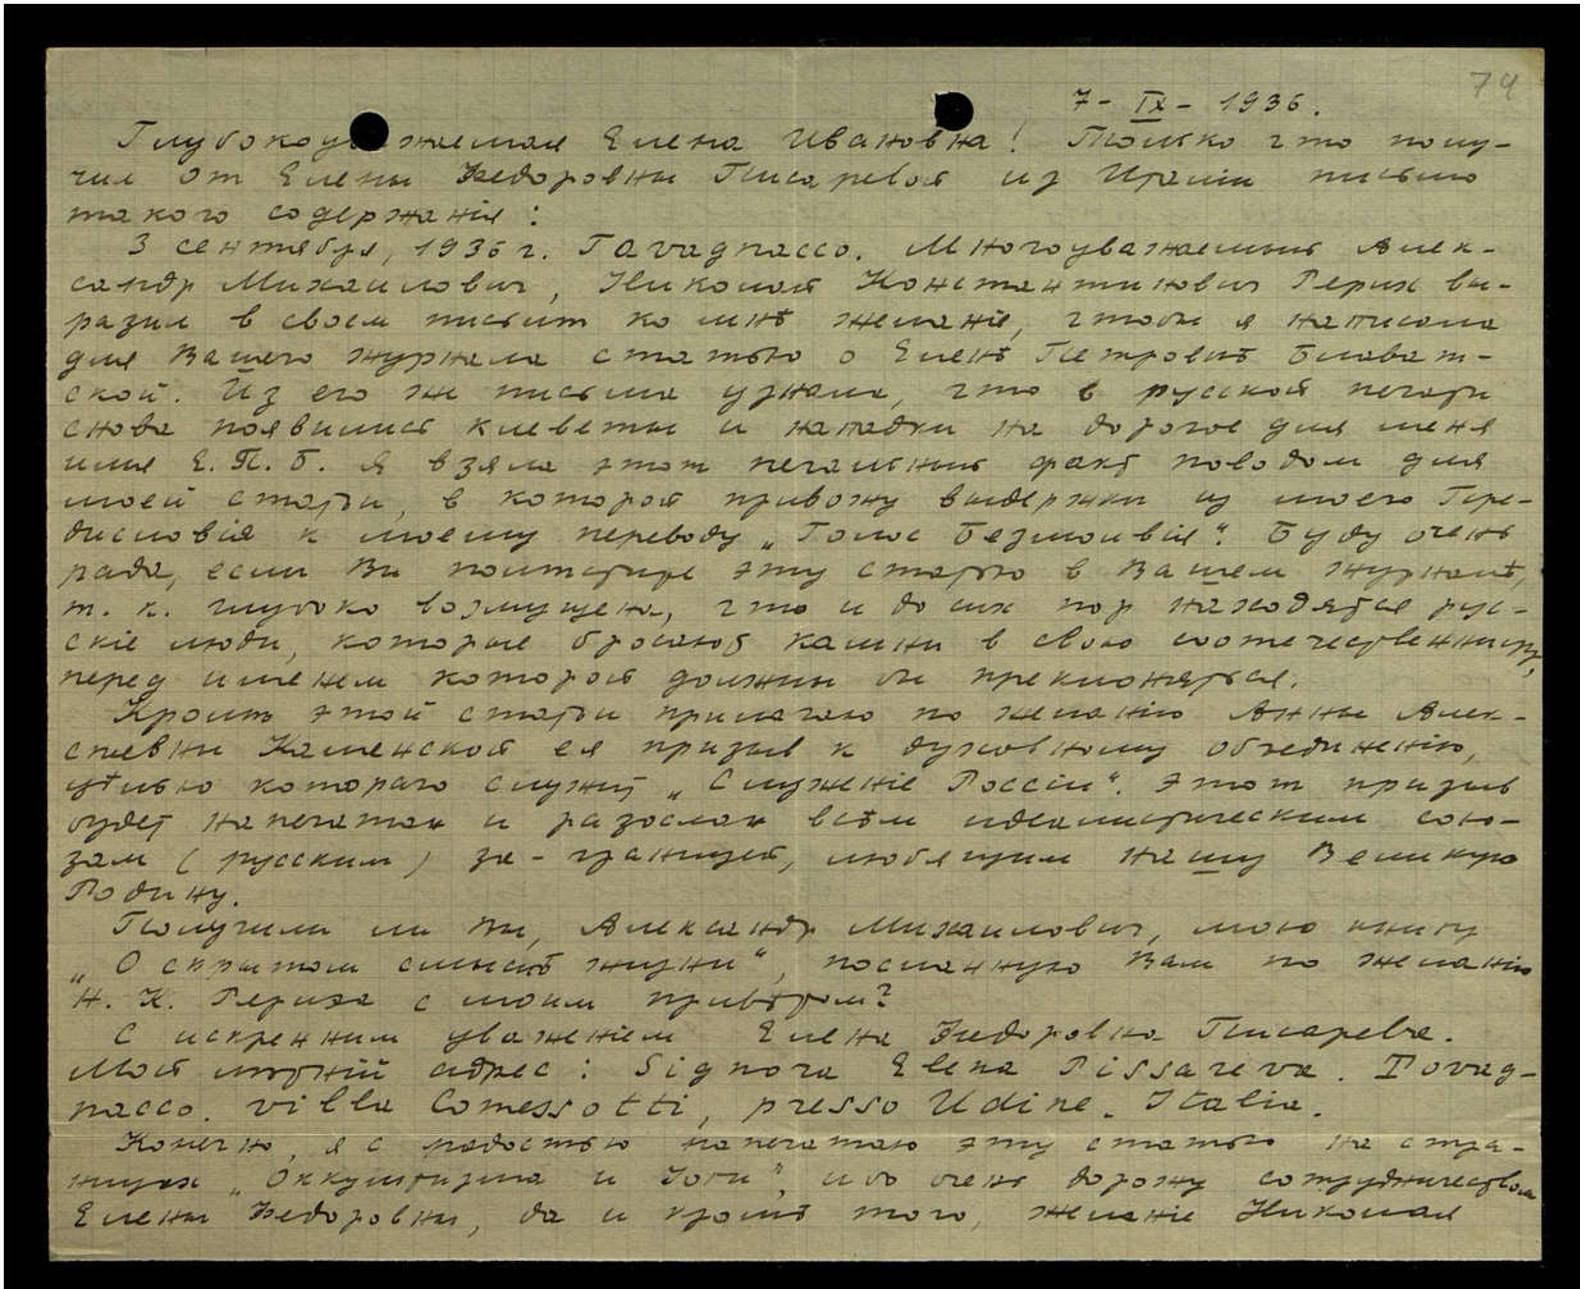 74
7 - IX - 1936.
Глубокоуважаемая Елена Ивановна! Только что полу-
чил от Елены Федоровны Писаревой из Италии письмо
такого содержанія:
3 сентября, 1936 г. Tavagnacco. Многоуважаемый Алек-
сандр Михаилович, Николай Константинович Рерих вы-
разил в своем письмѣ ко мнѣ желаніе, чтобы я написала
для Вашего журнала статью о Еленѣ Петровнѣ Блават-
ской. Из его же письма узнала, что в русской печати
снова появились клеветы и нападки на дорогое для меня
имя Е. П. Б. Я взяла этот печальный факт поводом для
моей статьи, в которой привожу выдержки из моего Пре-
дисловія к моему переводу „Голос Безмолвія“. Буду очень
рада, если Вы помѣстите эту статью в Вашем журналѣ,
т. к. глубоко возмущена, что и до сих пор находятся рус-
скіе люди, которые бросают камни в свою соотечественницу,
перед именем которой должны бы преклоняться.
Кромѣ этой статьи прилагаю по желанію Анны Алек-
сѣевны Каменской ея призыв к духовному объединенію,
цѣлью котораго служит „Служеніе Россіи“. Этот призыв
будет напечатан и разослан всѣм идеалистическим сою-
зам (русским) за-границей, любящим нашу Великую
Родину.
Получили ли Вы, Александр Михаилович, мою книгу
„О скрытом смыслѣ жизни“, посланную Вам по желанію
Н. К. Рериха с моим привѣтом?
С искренним уваженіем Елена Федоровна Писарева.
Мой лѣтній адрес: Signora Elena Pissareva. Tavag-
nacco. Villa Comessotti, presso Udine. Italia.
Конечно, я с радостью напечатаю эту статью на стра-
ницах „Оккультизма и Іоги“, ибо очень дорожу сотрудничеством
Елены Федоровны, да и кромѣ того, желаніе Николая